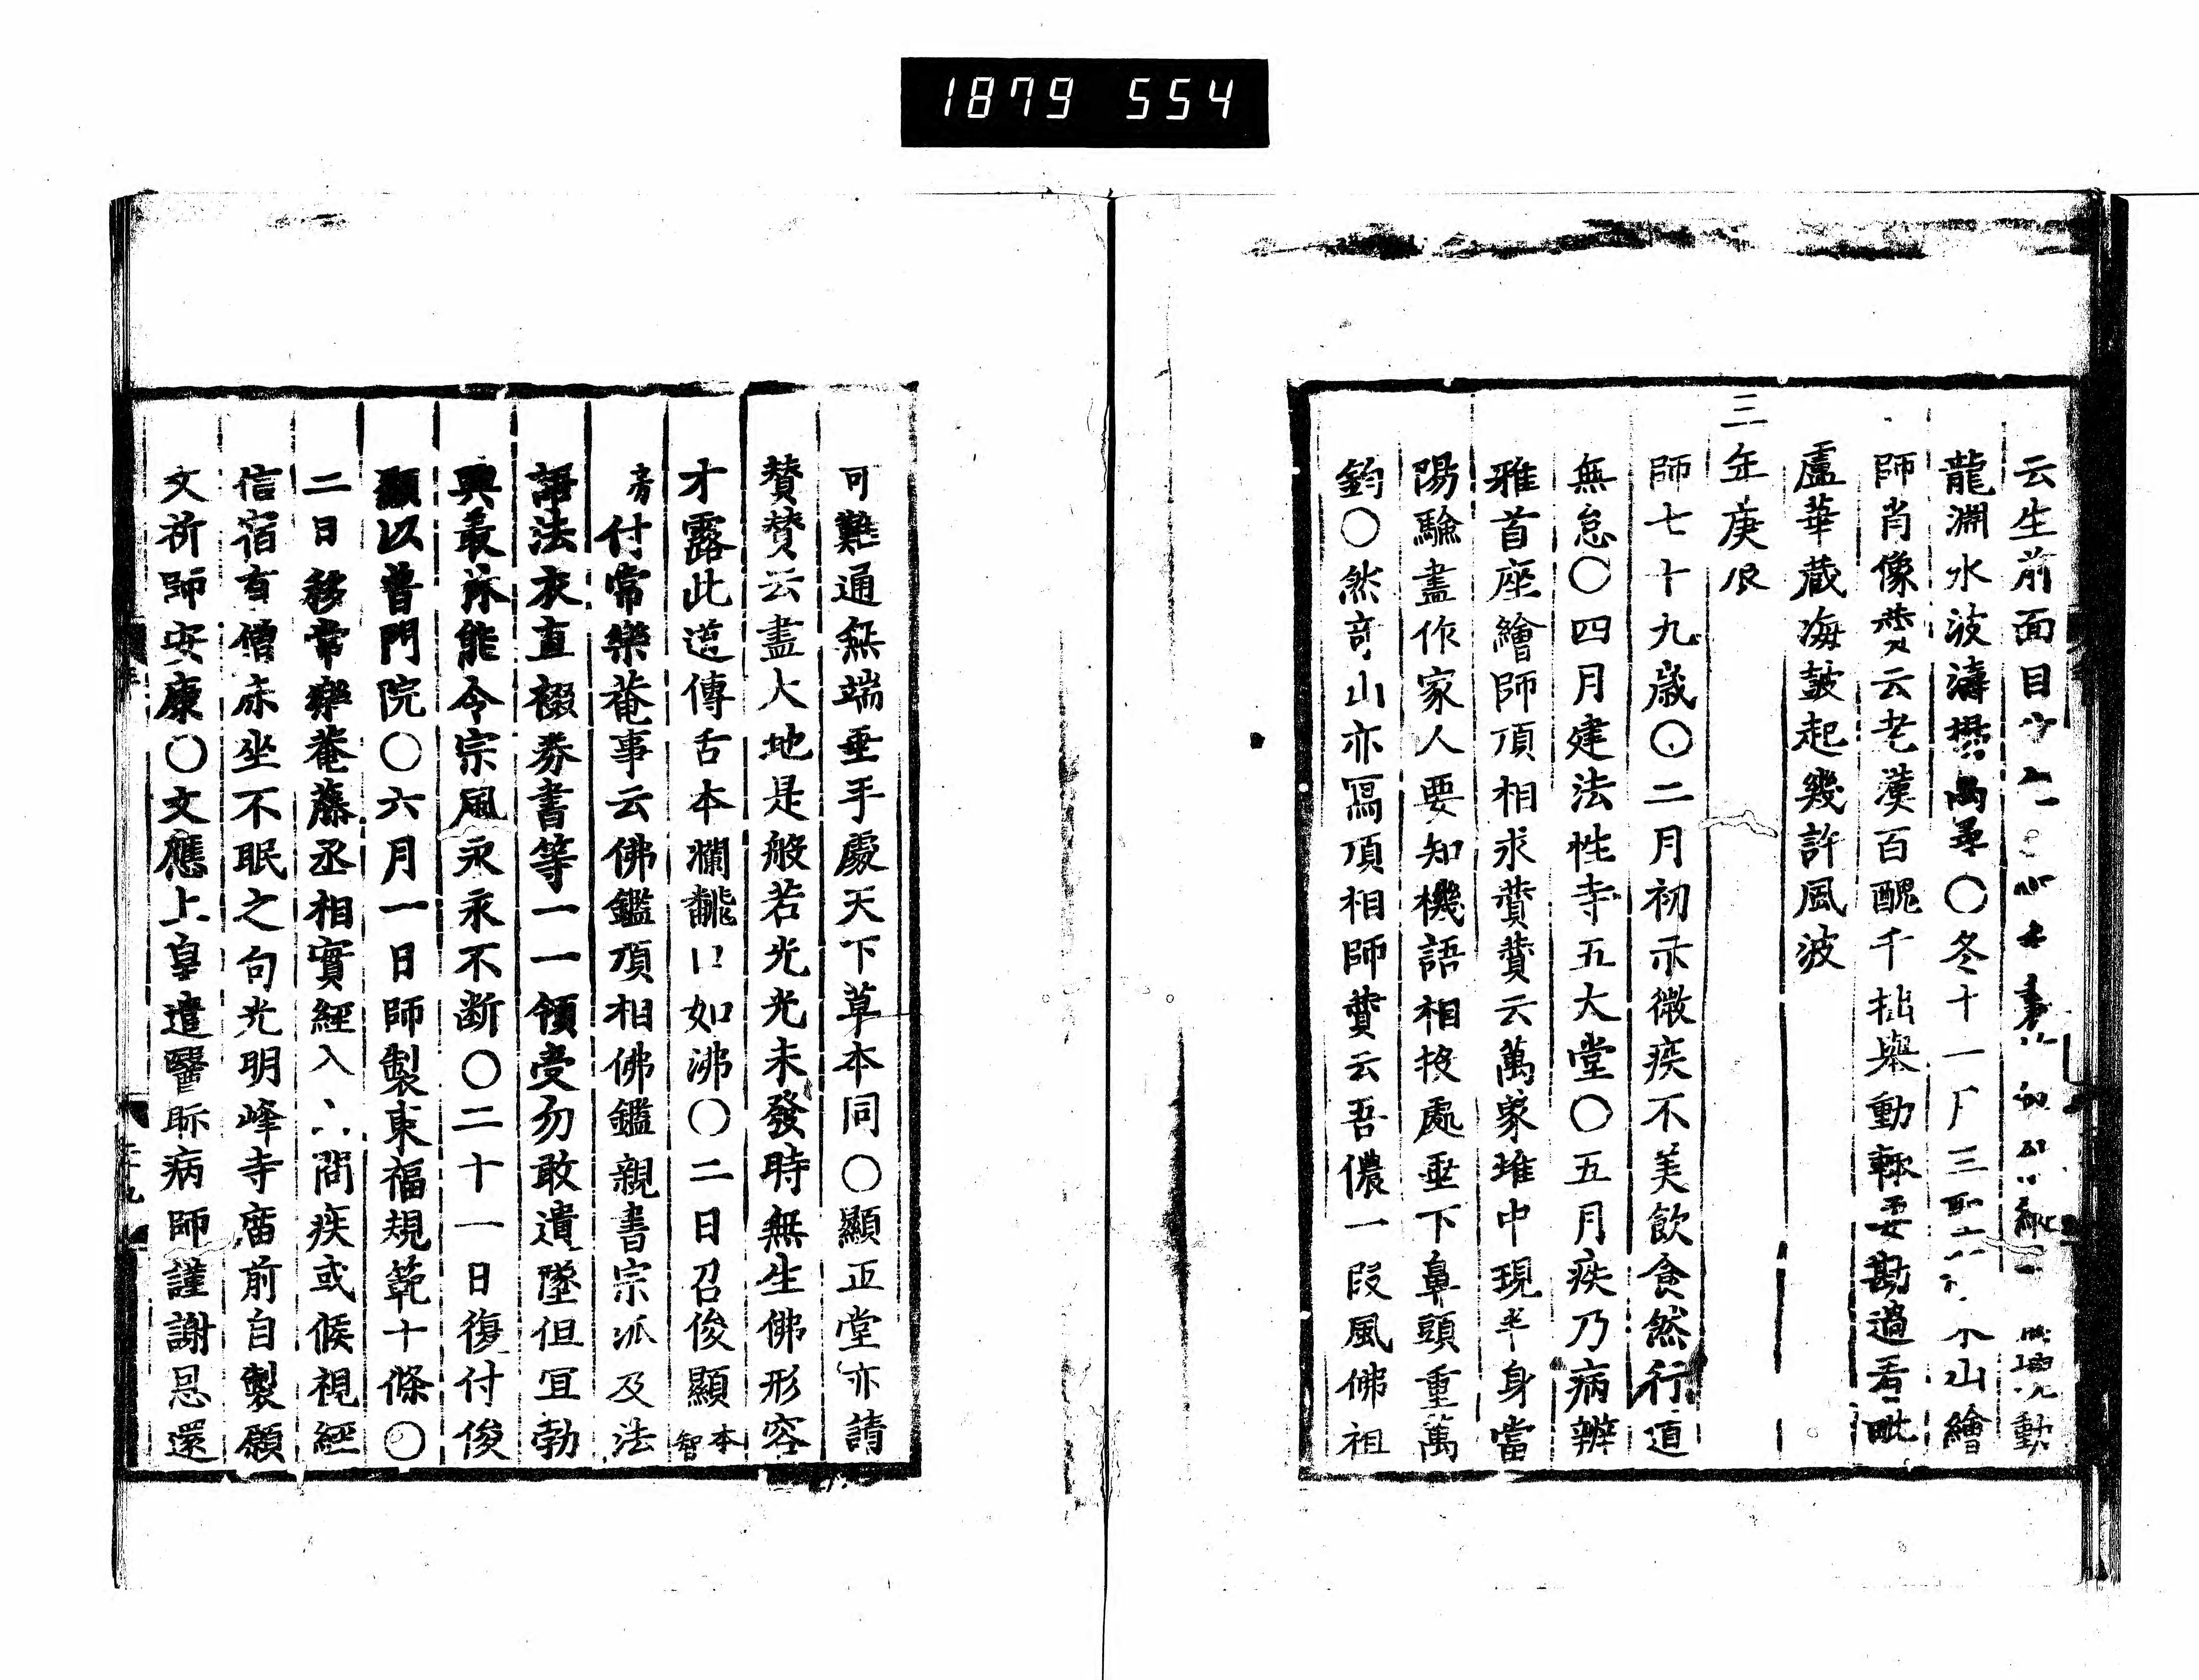 1879 554
云生前面目
龍淵水波濤攪萬尋〇冬十一月三聖山繪
師肖像贊云老漢百醜千拙舉動輒要勘過看毗
盧華藏海皷起幾許風波
三年庚辰
師七十九歲〇二月初示微疾不美飲食然行道
無怠〇四月建法性寺五大堂〇五月疾乃病辨
雅首座繪師頂相求贊贊云萬象堆中現半身當
陽驗盡作家人要知機語相投處垂下鼻頭重萬
鈞〇然奇山亦寫頂相師贊云吾儂一段風佛祖
可難通無端垂手處天下草本同〇顯正堂亦請
贊贊云盡大地是般若光光未發時無生佛形容
才露此道傳舌本瀾飜口如沸〇二日召俊顯本智
房付常樂菴事云佛鑑頂相佛鑑親書宗派及法
語法衣直裰券書等一一領受勿敢遺墜但宜勃
興叢林能令宗風永永不断〇二十一日復付俊
顯以普門院〇六月一日師製東福規範十條〇
二日移常樂菴藤丞相實經入山問疾或候視經
信宿有僧床坐不眠之句光明峰寺庿前自製願
文祈師安康〇文應上皇遣醫眎病師謹謝恩還